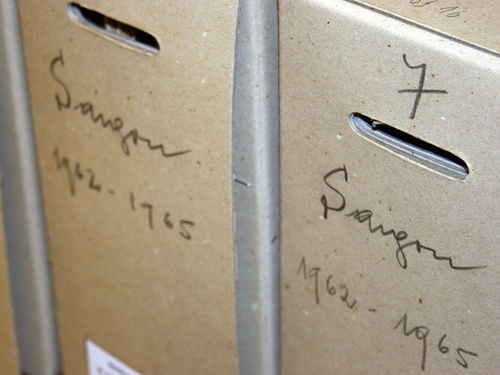 Saigon
1962-1965
7
Saigon
1962-1965